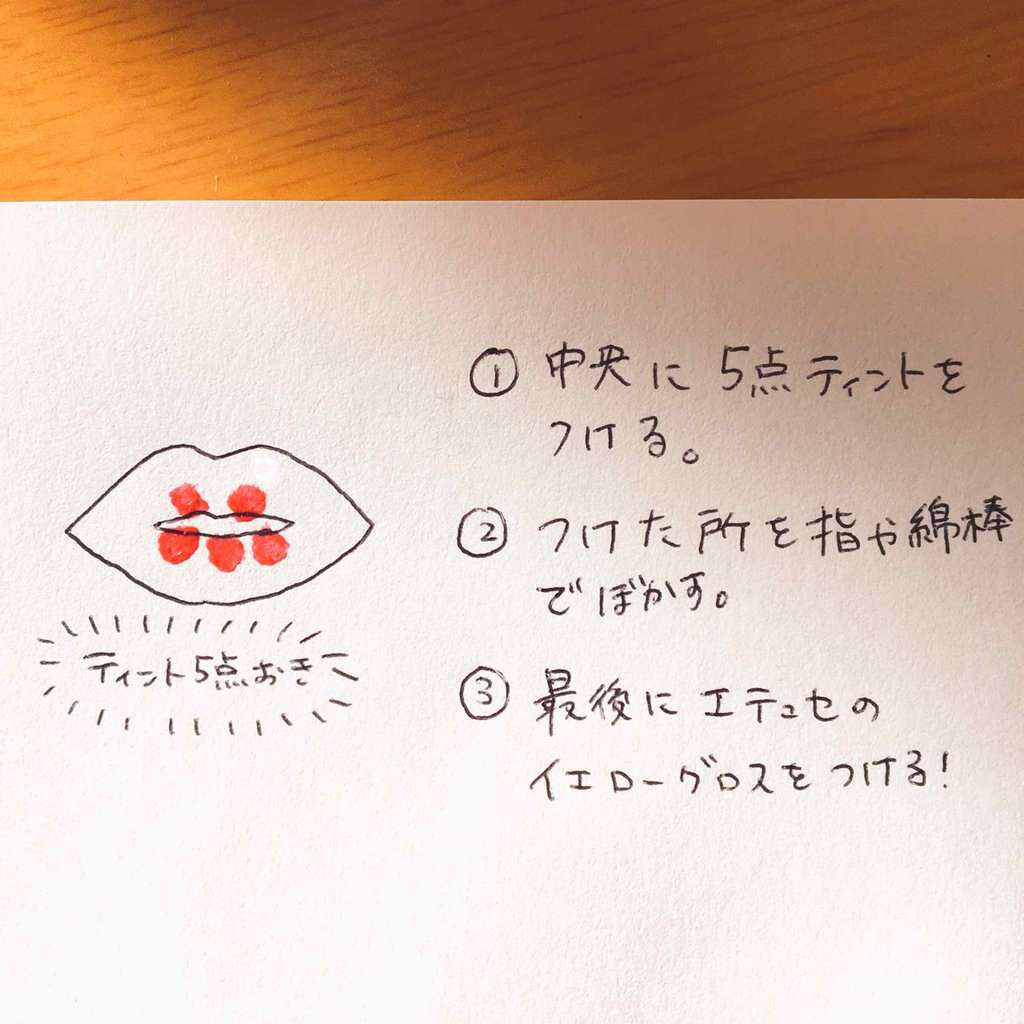 ① 中央に5点ティントを
つける。
② つけた所を指や綿棒
でぼかす。
③ 最後にエテュセの
イエローグロスをつける!
ティント5点おき